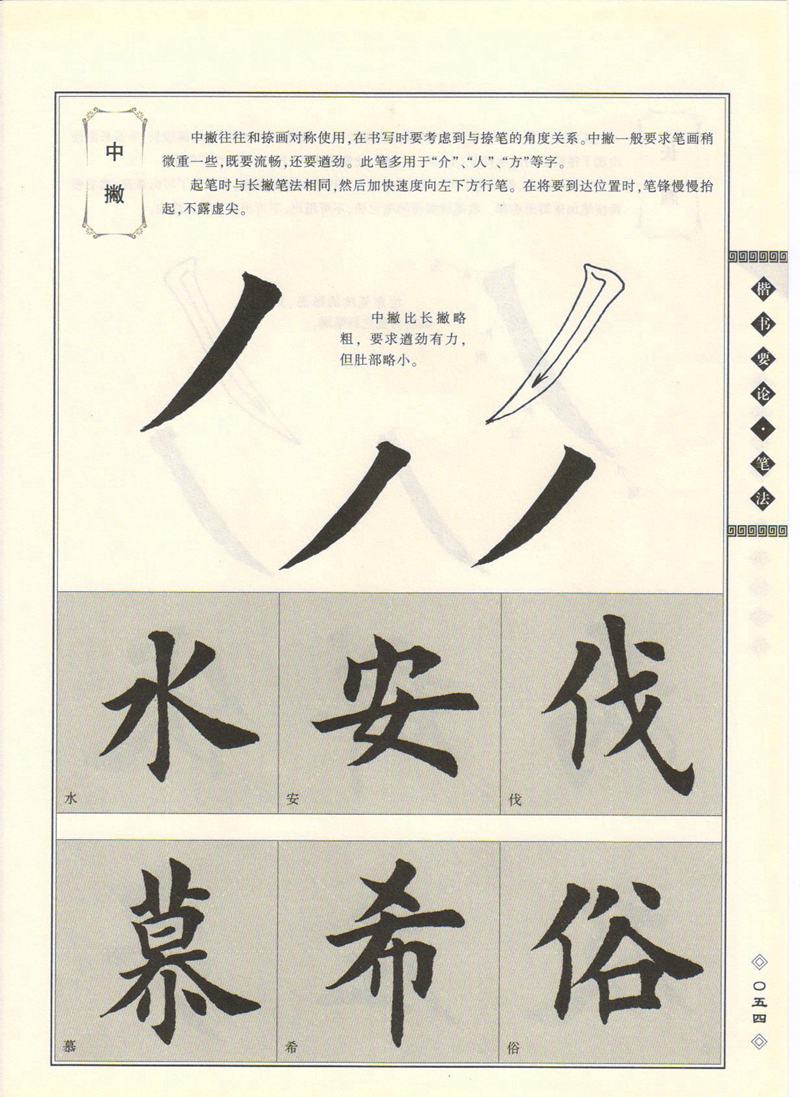 中撇
中撇往往和捺画对称使用,在书写时要考虑到与捺笔的角度关系。中撇一般要求笔画稍
微重一些,既要流畅,还要遒劲。此笔多用于“介”、“人”、“方”等字。
起笔时与长撇笔法相同,然后加快速度向左下方行笔。在将要到达位置时,笔锋慢慢抬
起,不露虚尖。
中撇比长撇略
粗,要求遒劲有力,
但肚部略小。
楷书要论·笔法
水 安 伐
水 安 伐
慕 希 俗
慕 希 俗
〇五四